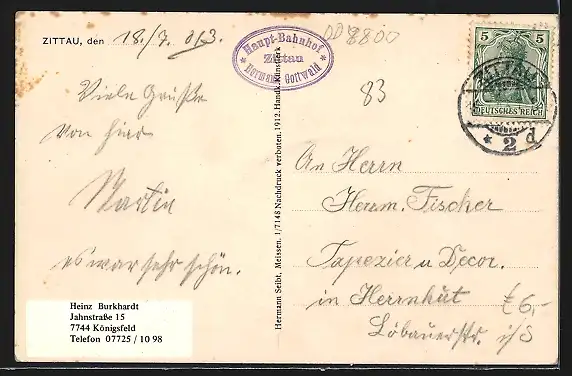 ZITTAU, den 18./7. 013.
Viele Grüße
von hier
Martin
es war sehr schön.
Heinz Burkhardt
Jahnstraße 15
7744 Königsfeld
Telefon 07725 / 10 98
* Haupt-Bahnhof *
Zittau
Hermann Gottwald
Hermann Seibt, Meissen. 1/7148 Nachdruck verboten. 1912. Handk. Künstlerk
8800
83
5 5
DEUTSCHES REICH
ZITTAU
* 2 d
An Herrn
Herm. Fischer
Tapezier u Decor.
in Herrnhut
€6,-
Löbauerstr. i/S